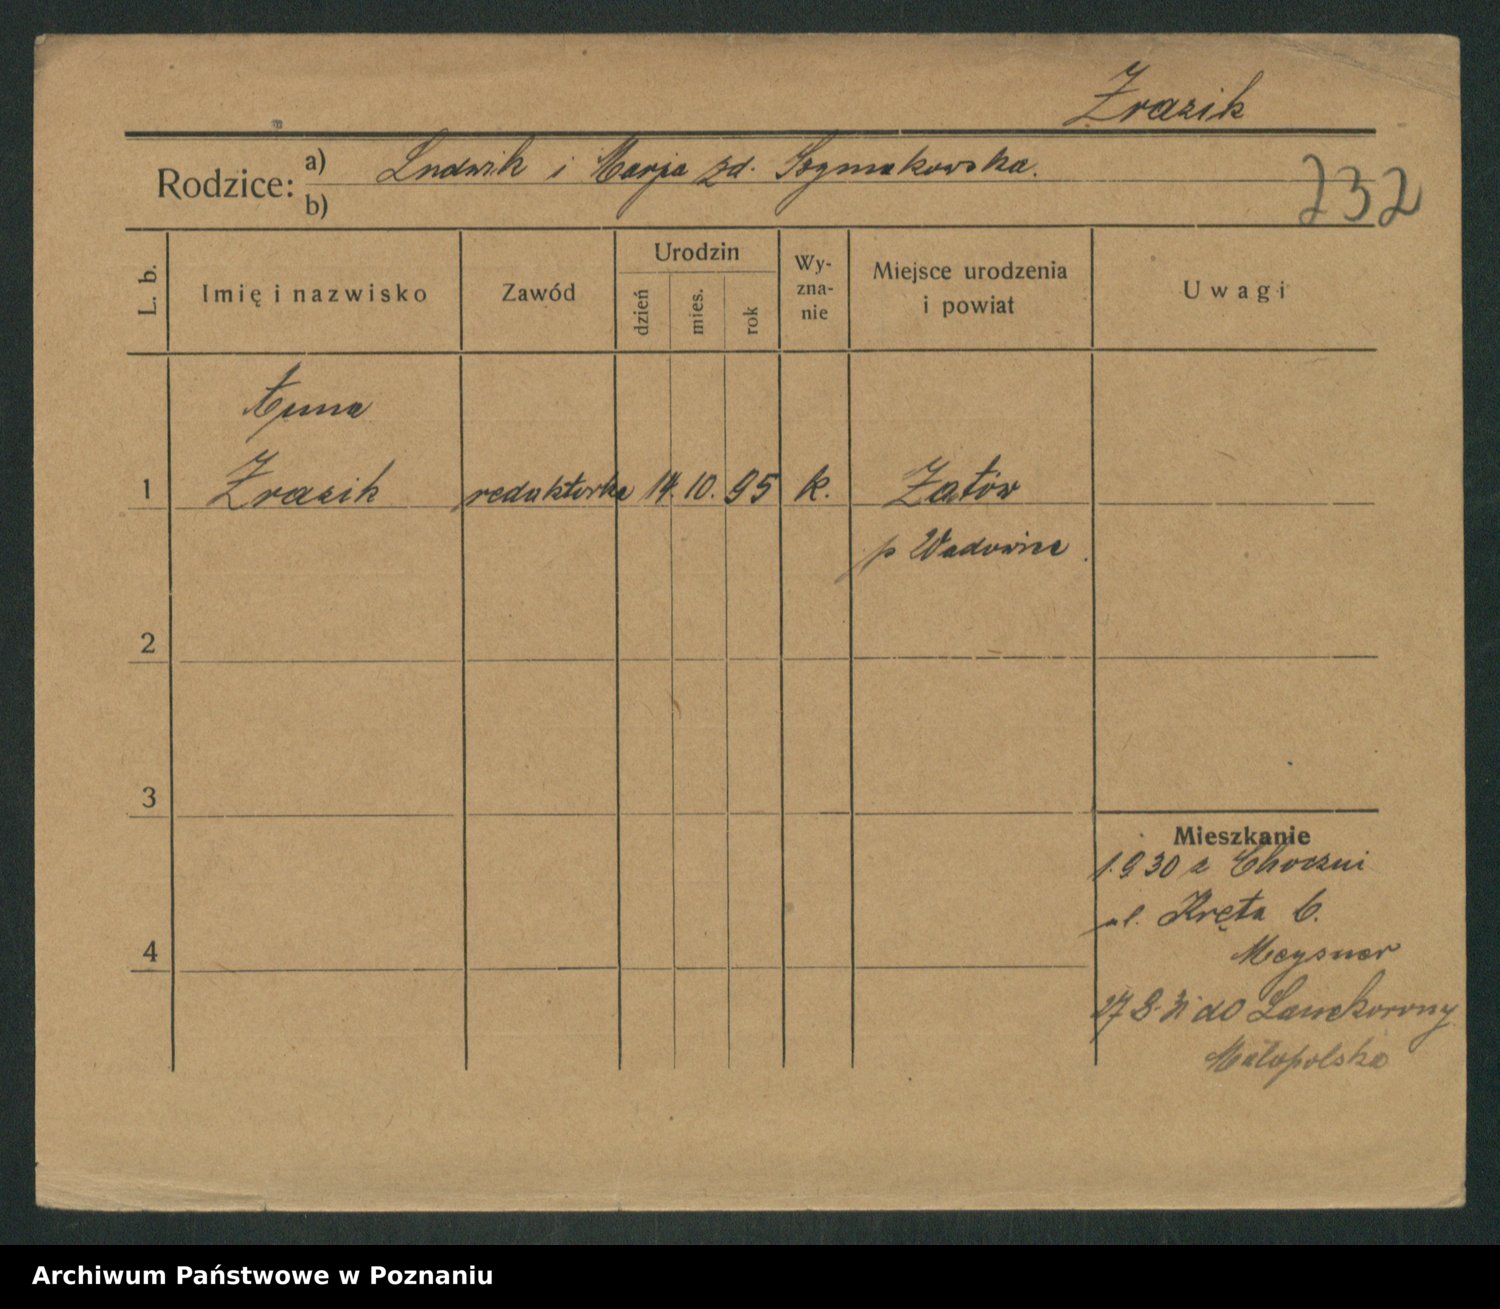 Zrazik
Rodzice: a) Ludwik i Marja zd. Szymakowska.
b)
232
L. b.
Imię i nazwisko
Zawód
Urodzin
dzień
mies.
rok
Wy-
zna-
nie
Miejsce urodzenia
i powiat
Uwagi
Anna
1 Zrazik redaktorka 14. 10. 95 k. Zatór
p Wadowice
2
3
4
Mieszkanie
1.9 30 z Choczni
ul. Kręta 6.
Meysner
27 8. 31 do Lanckorony
Małopolska
Archiwum Państwowe w Poznaniu